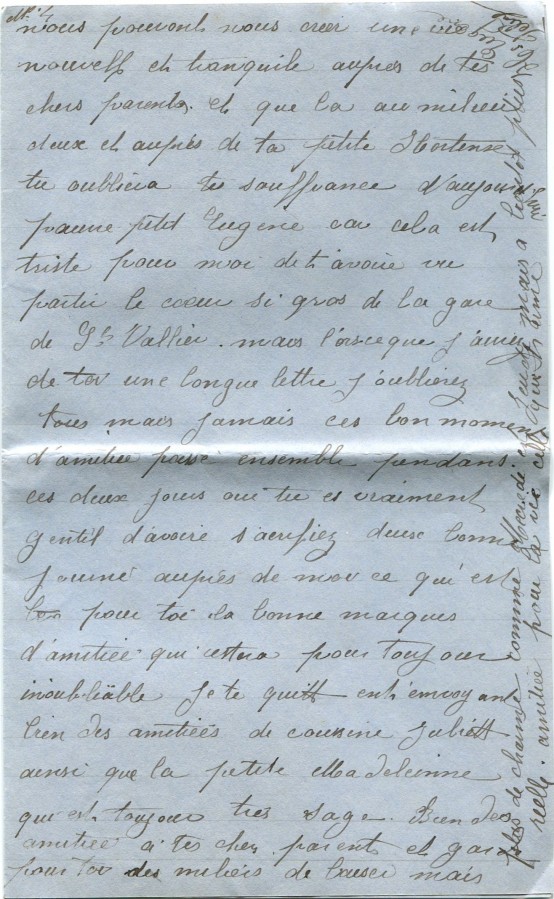 nous pouvont nous creer une vie
nouvell et tranquile aupres de tes
chers parents. et que la au milieu
deux et aupres de ta petite Hortense
tu oubliera tes souffrance d'aujourd'hui
pauvre petit Eugene car cela est
triste pour moi de t'avoire vu
partir le coeur si gros de la gare
de St Vallier. mais l'orsceque j'aurez
de toi une longue lettre j'oublirez
tous mais jamais ces bon moment
d'amitiée passé ensemble pendans
ces deux jours oui tu es vraiment
gentil d'avoire sacrifiez deux bonne
journé aupres de moi ce qui est
pour toi la bonne marques
d'amitiée qui restera pour toujour
inoubliable Je te quitt en t'envoyant
bien des amitiées de cousine Juliett
ainsi que la petite Madeleinne
qui est toujour tres sage. Bien des
amitiée a tes cher parent et garde
pour toi des miliers de baiser mais
plus de chaine comme Mercredi et Jeudi mais a bientot plus
reelle. amitiée pour la vie celle qui t'aime